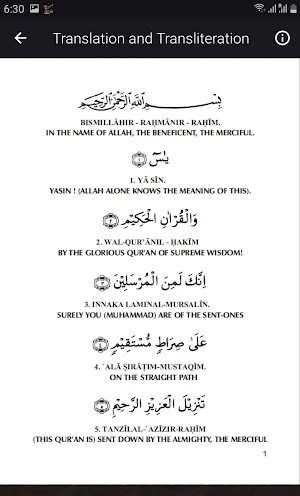 6:30
Translation and Transliteration
بِسْمِ اللّٰهِ الرَّحْمٰنِ الرَّحِيْمِ
BISMILLĀHIR - RAḤMĀNIR - RAḤĪM.
IN THE NAME OF ALLAH, THE BENEFICENT, THE MERCIFUL.
يٰسٓ ﴿١﴾
1. YĀ SĪN.
YASIN ! (ALLAH ALONE KNOWS THE MEANING OF THIS).
وَالْقُرْاٰنِ الْحَكِيْمِ ﴿٢﴾
2. WAL-QUR'ĀNIL - ḤAKĪM
BY THE GLORIOUS QUR'AN OF SUPREME WISDOM!
اِنَّكَ لَمِنَ الْمُرْسَلِيْنَ ﴿٣﴾
3. INNAKA LAMINAL-MURSALĪN.
SURELY YOU (MUHAMMAD) ARE OF THE SENT-ONES
عَلٰى صِرَاطٍ مُّسْتَقِيْمٍ ﴿٤﴾
4. ʿALĀ ṢIRĀṬIM-MUSTAQĪM.
ON THE STRAIGHT PATH
تَنْزِيْلَ الْعَزِيْزِ الرَّحِيْمِ ﴿٥﴾
5. TANZĪLAL-ʿAZĪZIR-RAḤĪM
(THIS QUR'AN IS) SENT DOWN BY THE ALMIGHTY, THE MERCIFUL
1